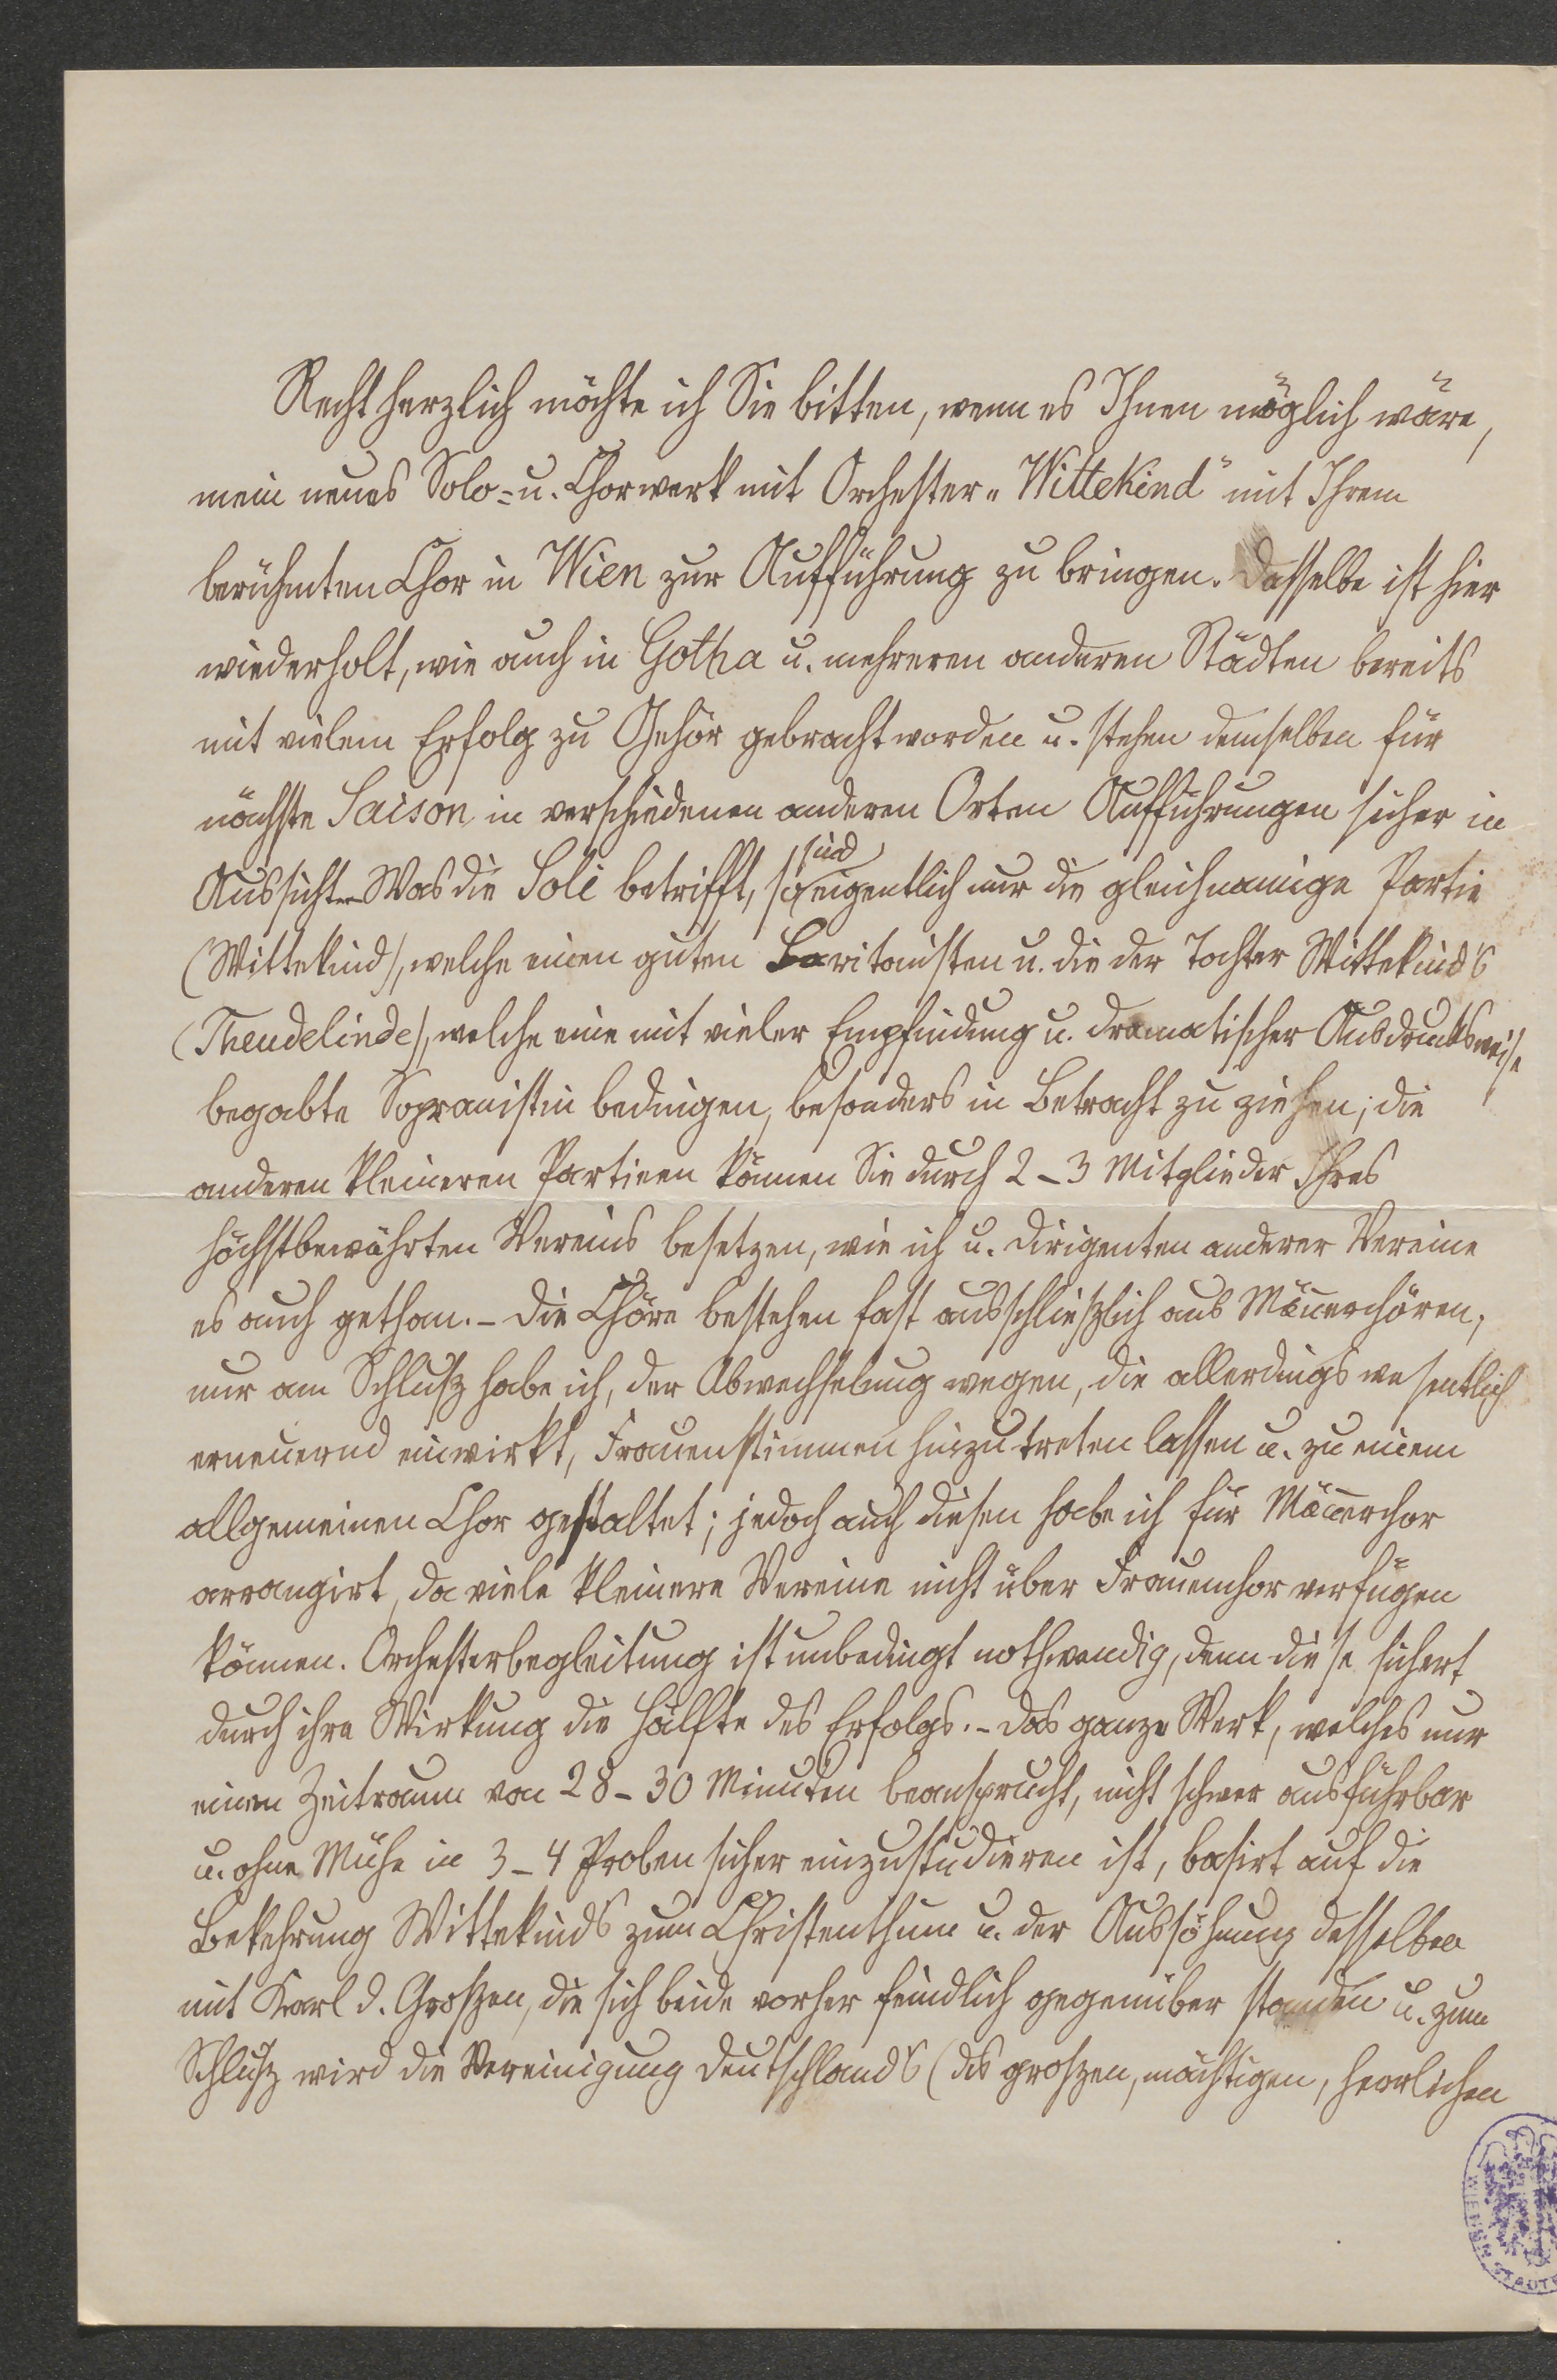 Recht herzlich möchte ich Sie bitten, wenn es Ihnen möglich wäre,
mein neues Solo- u. Chorwerk mit Orchester „Wittekind" mit Ihrem
berühmten Chor in Wien zur Aufführung zu bringen. Dasselbe ist hier
wiederholt, wie auch in Gotha u. mehreren anderen Städten bereits
mit vielem Erfolg zu Gehör gebracht worden u. stehen demselben für
nächste Saison in verschiedenen anderen Orten Aufführungen sicher in
Aussicht. – Was die Soli betrifft, so sind eigentlich nur die gleichnamige Partie
(Wittekind), welche einen guten Baritonisten u. die der Tochter Wittekind's
(Theudelinde), welche eine mit vieler Empfindung u. dramatischer Ausdrucksweise
begabte Sopranistin bedingen, besonders in Betracht zu ziehen; die
anderen kleineren Partieen können Sie durch 2–3 Mitglieder Ihres
höchstbewährten Vereins besetzen, wie ich u. Dirigenten anderer Vereine
es auch gethan. – Die Chöre bestehen fast ausschließlich aus Männerchören,
nur am Schluß habe ich, der Abwechselung wegen, die allerdings wesentlich
erneuernd einwirkt, Frauenstimmen hinzutreten lassen u. zu einem
allgemeinen Chor gestaltet; jedoch auch diesen habe ich für Männerchor
arrangirt, da viele kleinere Vereine nicht über Frauenchor verfügen
können. Orchesterbegleitung ist unbedingt nothwendig, denn diese sichert
durch ihre Wirkung die Hälfte des Erfolgs. – Das ganze Werk, welches nur
einen Zeitraum von 28–30 Minuten beansprucht, nicht schwer ausführbar
u. ohne Mühe in 3–4 Proben sicher einzustudieren ist, basirt auf die
Bekehrung Wittekinds zum Christenthum u. der Aussöhnung desselben
mit Karl d. Großen, die sich beide vorher feindlich gegenüber standen u. zum
Schluß wird die Vereinigung Deutschland's (des großen, mächtigen, herrlichen
WIENER STADT